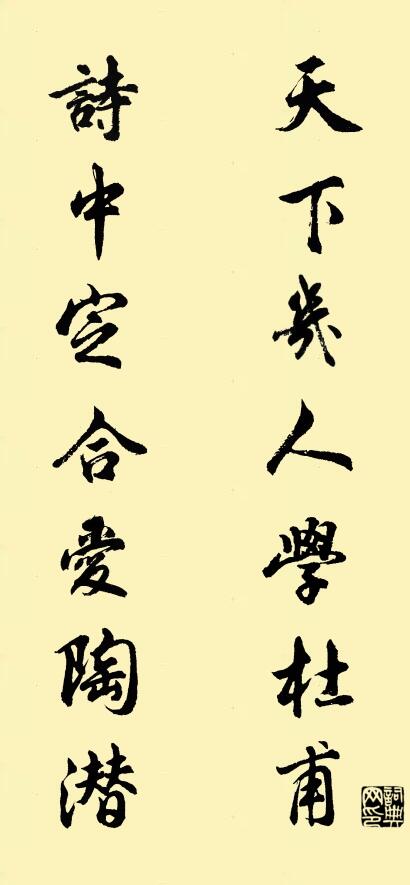 天下幾人學杜甫
詩中定合愛陶潛
詞典網印